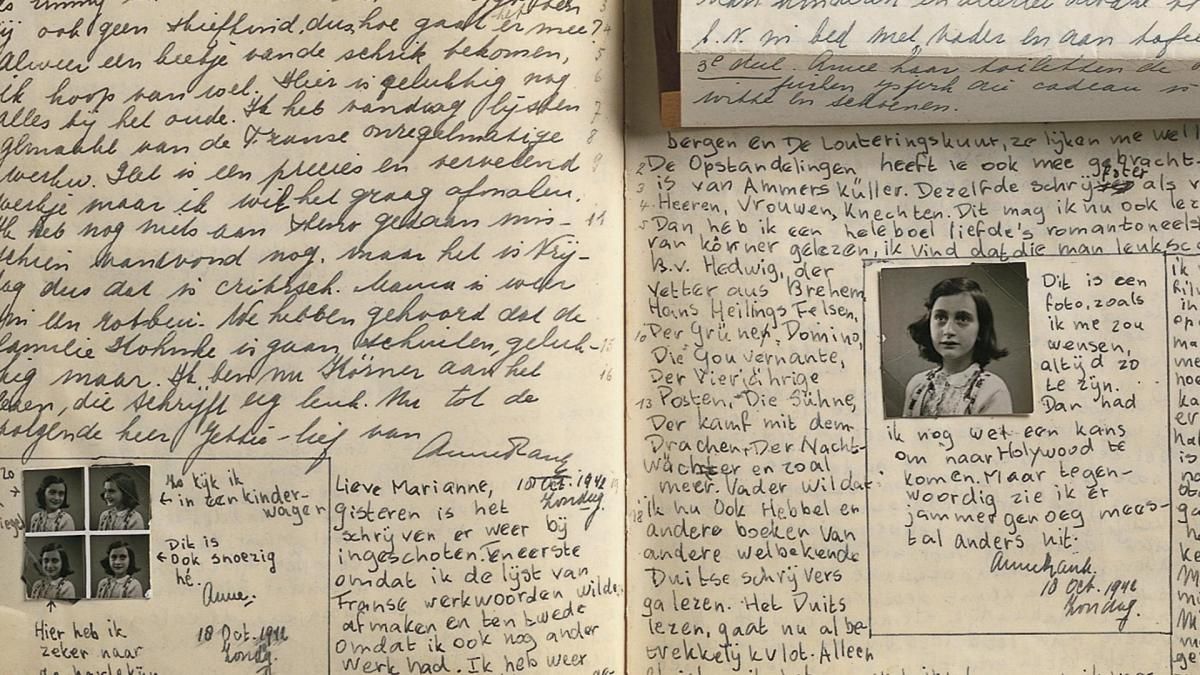 ij ook geen stiefkind, dus hoe gaat het er mee?
Alweer een beetje van de schrik bekomen,
ik hoop van wel. Hier is gelukkig nog
alles bij het oude. Ik heb vandaag lijsten
gemaakt van de Franse onregelmatige
werkw. Het is een precies en vervelend
werkje maar ik wil het graag afmaken.
Ik heb nog niets aan Steno gedaan mis-
schien vanavond nog, maar het is Vrij-
dag dus dat is critisch. Mama is weer
familie is gaan schuilen, geluk-
kig maar. Ik ben nu Körner aan het
lezen, die schrijft erg leuk. Nu tot de
volgende keer Jettie-lief van
Anne Frank
Zo kijk ik
in een kinder-
wagen
Dit is
ook snoezig
hé.
Anne.
Hier heb ik
zeker naar
18 Oct. 1942
Zondag.
Lieve Marianne,
gisteren is het
schrijven er weer bij
ingeschoten. Ten eerste
omdat ik de lijst van
Franse werkwoorden wilde
afmaken en ten twede
omdat ik ook nog ander
werk had. Ik heb weer
18 Oct. 1942
Zondag.
b.v. in bed met vader en aan tafel
3e deel. Anne haar toiletten de
witte en schoenen.
bergen en De Louteringskuur, ze lijken me wel
2 De Opstandelingen heeft ie ook mee gebracht-
3 is van Ammers Küller. Dezelfde schrijfster als v
4 Heeren, Vrouwen, Knechten. Dit mag ik nu ook lez
5 Dan heb ik een heleboel liefde's romantoneels
van körner gelezen, ik vind dat die man leuk sc
B.v. Hedwig, der
Vetter aus Brehem
Hans Heilings Felsen,
10 Der Grünen Domino,
Die Gouvernante,
Der Vierjährige
13 Posten, Die Sühne,
Der kamf mit dem
Drachen, Der Nacht-
wächter en zoal
meer. Vader wil dat
18 ik nu ook Hebbel en
andere boeken van
andere welbekende
Duitse schrijvers
ga lezen. Het Duits
lezen, gaat nu al be-
trekkelijk vlot. Alleen
Dit is een
foto, zoals
ik me zou
wensen,
altijd zo
te zijn.
Dan had
ik nog wel een kans
om naar Holywood te
komen. Maar tegen-
woordig zie ik er
jammer genoeg mees-
tal anders uit.
Anne Frank.
18 Oct. 1942
Zondag.